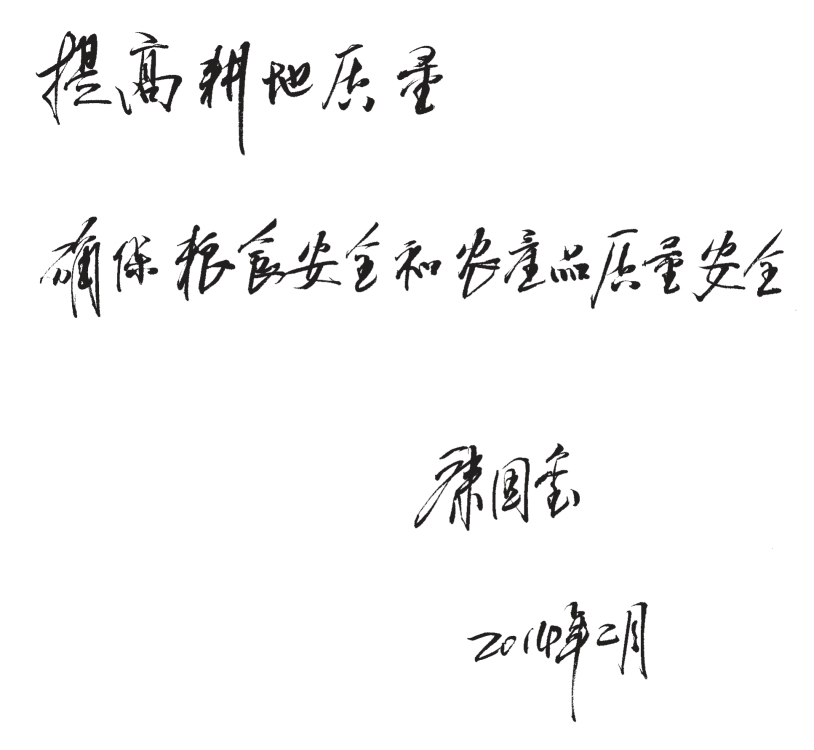 提高耕地质量
确保粮食安全和农產品质量安全
国
2014年二月